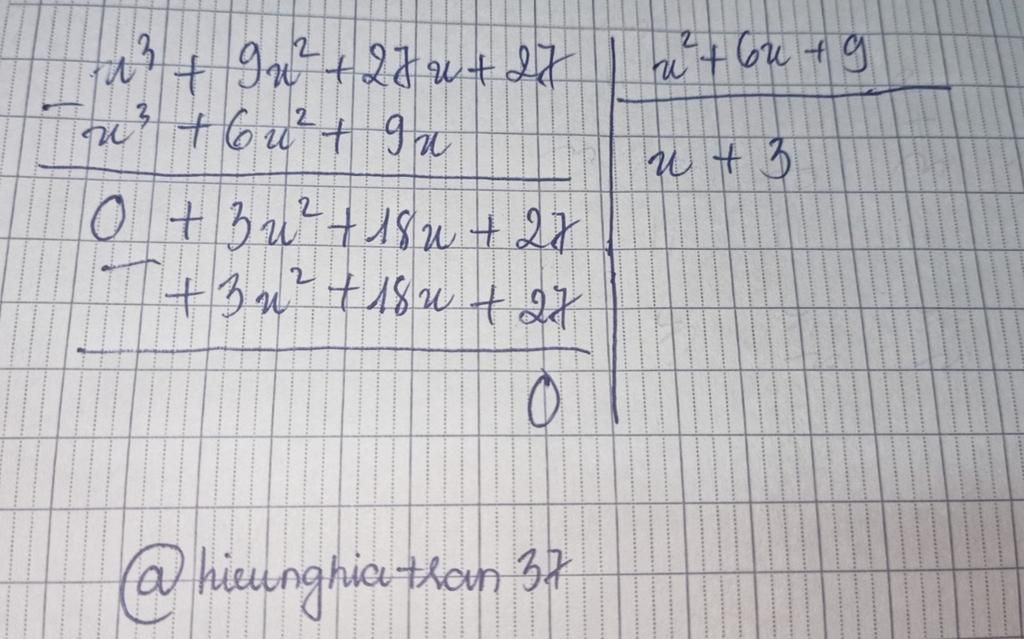 x³ + 9x² + 27x + 27 | x² + 6x + 9
− x³ + 6x² + 9x | x + 3
0 + 3x² + 18x + 27
− + 3x² + 18x + 27
0
@hieunghiatran37